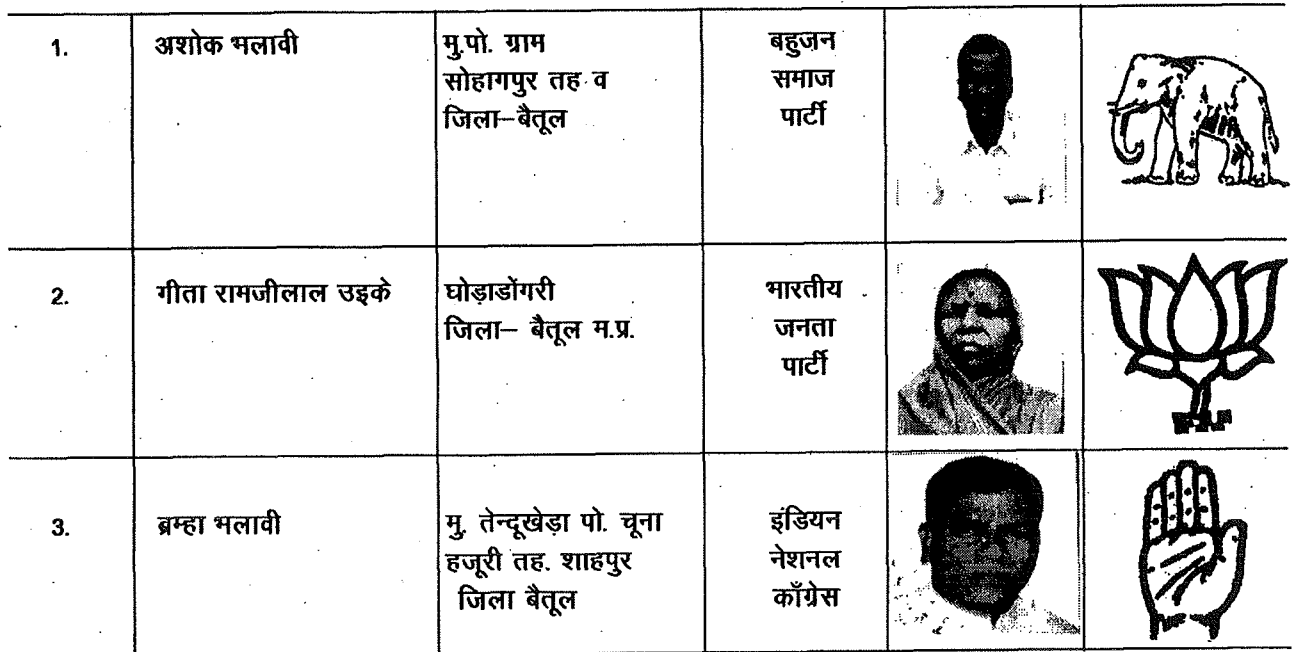 1.
अशोक भलावी
मु.पो. ग्राम
सोहागपुर तह व
जिला–बैतूल
बहुजन
समाज
पार्टी
2.
गीता रामजीलाल उइके
घोड़ाडोंगरी
जिला– बैतूल म.प्र.
भारतीय
जनता
पार्टी
3.
ब्रम्हा भलावी
मु. तेन्दूखेड़ा पो. चूना
हजूरी तह. शाहपुर
जिला बैतूल
इंडियन
नेशनल
काँग्रेस